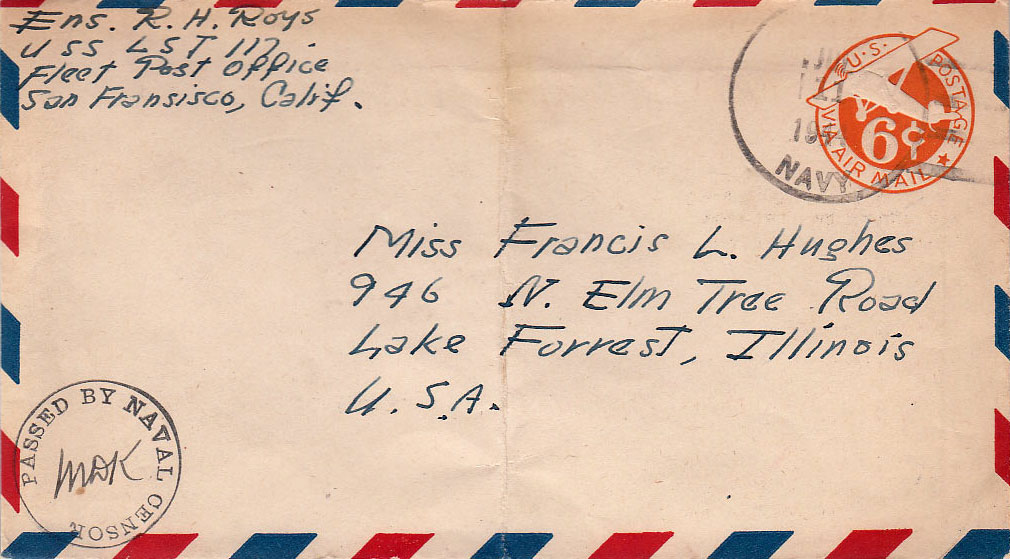 Ens. R. H. Roys
U SS LST 117
Fleet Post Office
San Fransisco, Calif.
U.S. POSTAGE
6¢
VIA AIR MAIL
NAVY
Miss Francis L. Hughes
946 N. Elm Tree Road
Lake Forrest, Illinois
U.S.A.
PASSED BY NAVAL CENSOR
MDK